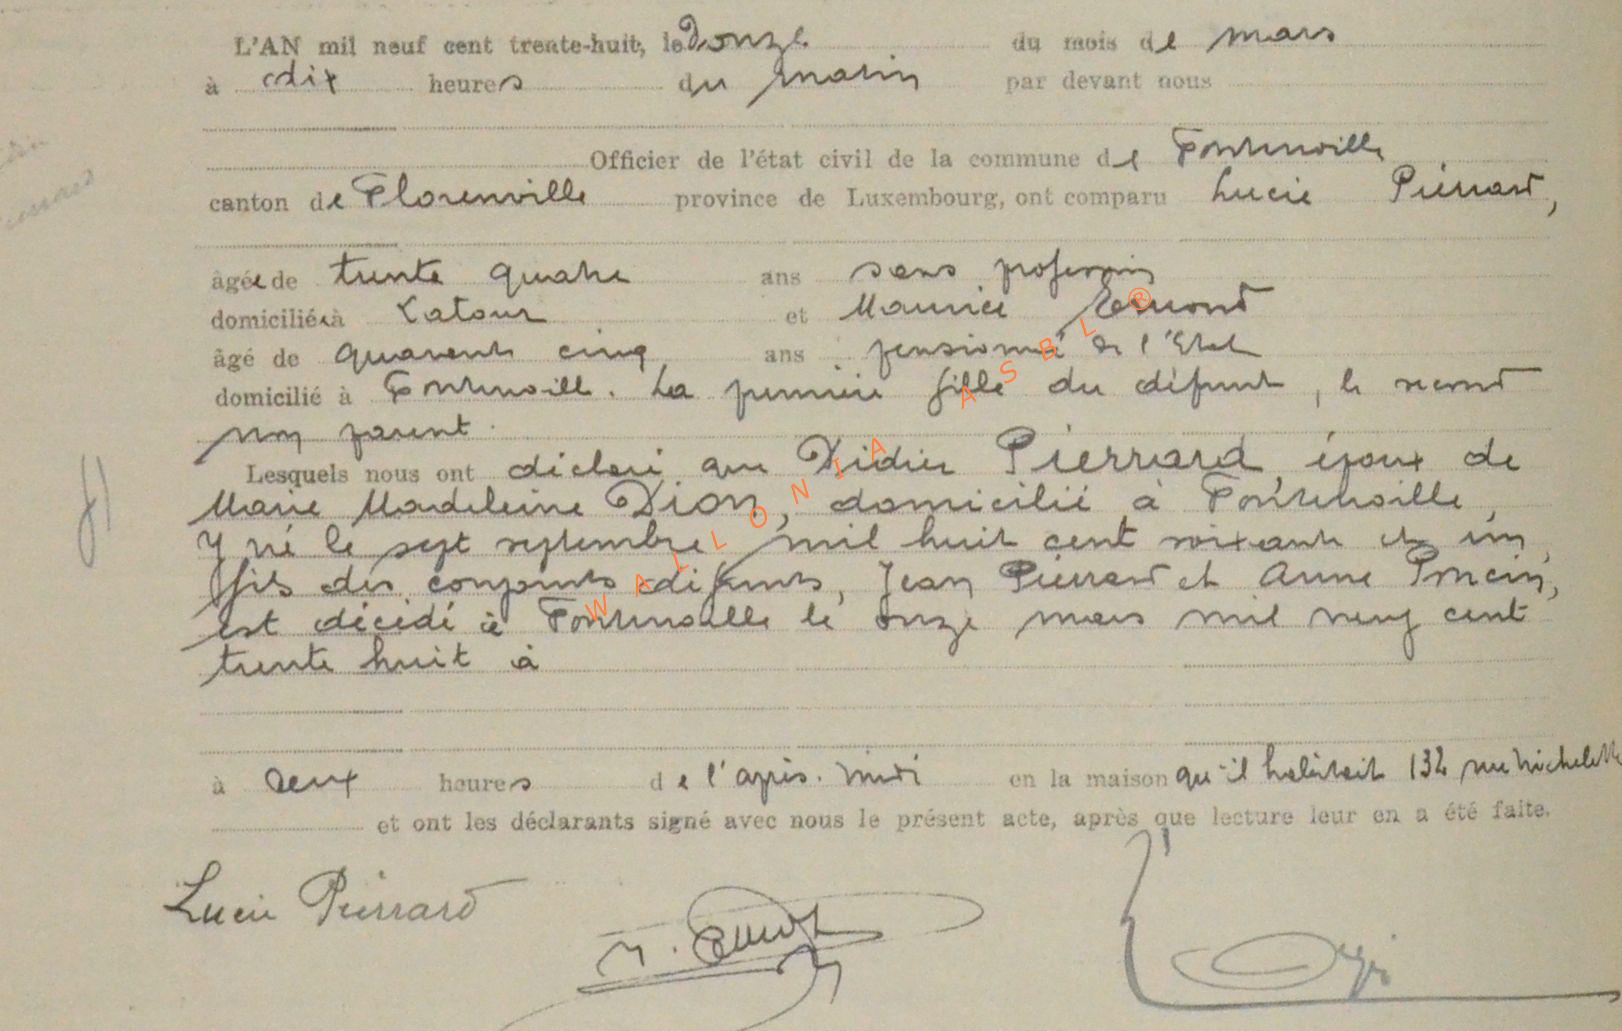 L'AN mil neuf cent trente-huit, le douze du mois de mars
à dix heures du matin par devant nous
Officier de l'état civil de la commune de Fontenoille
canton de Florenville province de Luxembourg, ont comparu Lucie Pierrard,
âgée de trente quatre ans sans profession
domiciliée à Latour et Maurice Edmond
âgé de quarante cinq ans pensionné de l'Etat
domicilié à Fontenoille. La première fille du défunt, le second
non parent.
Lesquels nous ont déclaré que Didier Pierrard, époux de
Marie Madeleine Dion, domicilié à Fontenoille,
y né le sept septembre mil huit cent soixante et un,
fils des conjoints défunts, Jean Pierrard et Anne Poncin,
est décédé à Fontenoille le onze mars mil neuf cent
trente huit à
à deux heures de l'après-midi en la maison qu'il habitait 132 rue
et ont les déclarants signé avec nous le présent acte, après que lecture leur en a été faite.
Lucie Pierrard
WALLONIA ASBL ®